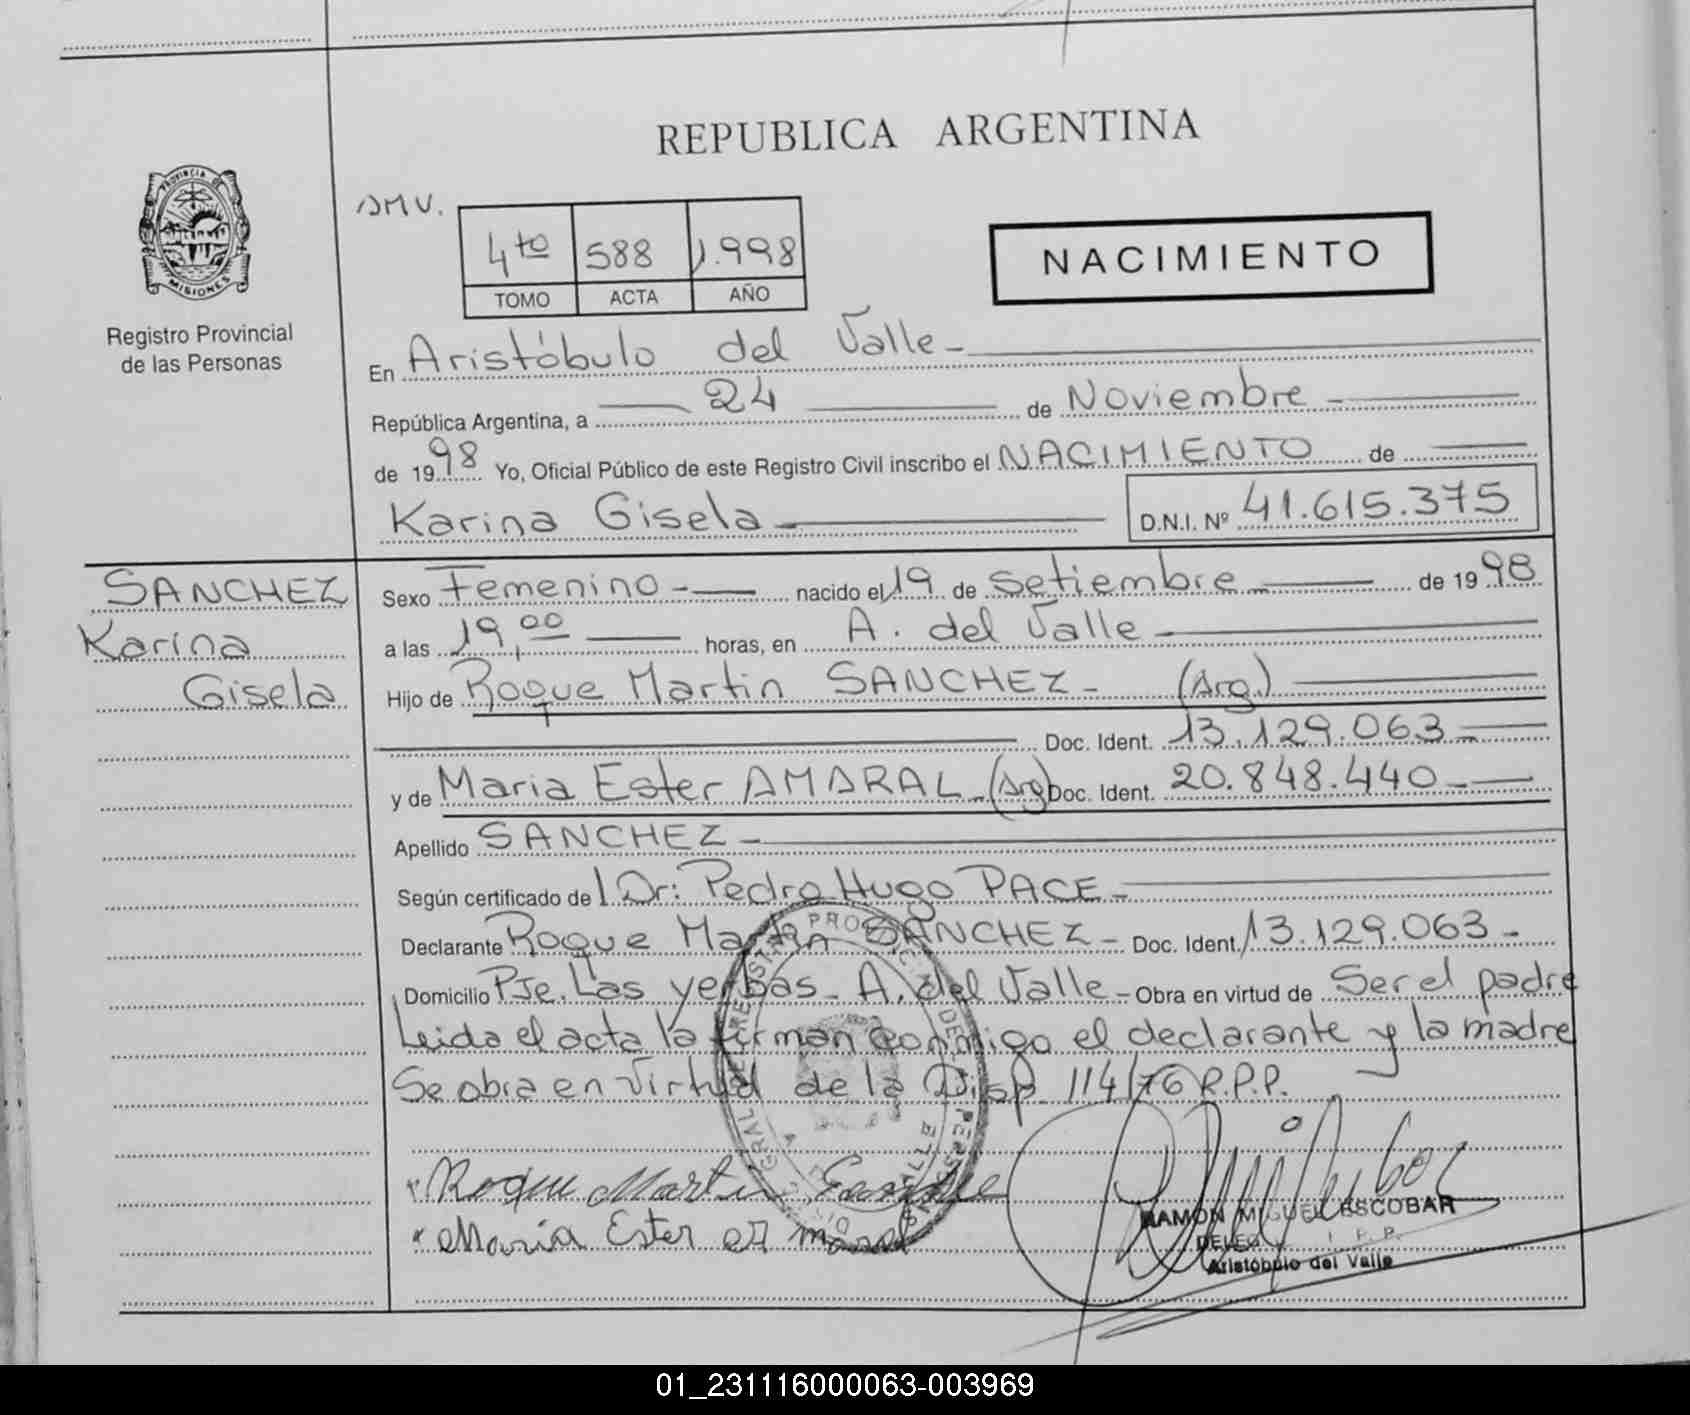 REPUBLICA ARGENTINA
PROVINCIA DE
MISIONES
Registro Provincial
de las Personas
4to 588 1.998
TOMO ACTA AÑO
NACIMIENTO
En Aristóbulo del Valle
República Argentina, a 24 de Noviembre
de 1998 Yo, Oficial Público de este Registro Civil inscribo el NACIMIENTO de
Karina Gisela D.N.I. Nº 41.615.375
SANCHEZ
Karina
Gisela
Sexo Femenino nacido el 19 de Setiembre de 1998
a las 19,00 horas, en A. del Valle
Hijo de Roque Martin SANCHEZ (Arg.)
Doc. Ident. 13.129.063
y de Maria Ester AMARAL (Arg) Doc. Ident. 20.848.440
Apellido SANCHEZ
Según certificado del Dr: Pedro Hugo PACE
Declarante Roque Martin SANCHEZ Doc. Ident. 13.129.063
Domicilio Pje. Las yerbas A. del Valle Obra en virtud de Ser el padre
Leida el acta la firman conmigo el declarante y la madre
Se obra en virtud de la Disp 114/76 R.P.P.
Roque Martin
Maria Ester
RAMON MIGUEL ESCOBAR
Aristóbulo del Valle
01_231116000063-003969